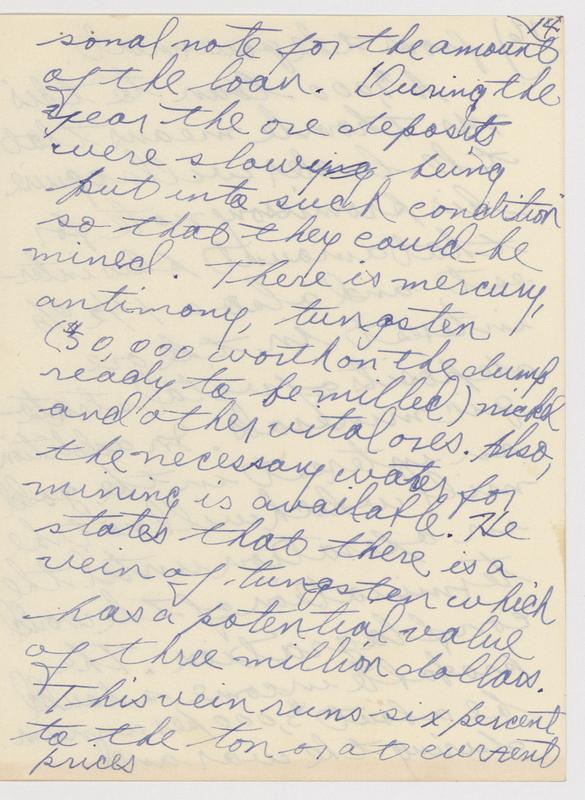 14
sonal note for the amount
of the loan. During the
year the ore deposits
were slowying being
put into such condition
so that they could be
mined. There is mercury,
antimony, tungsten
($50,000 worth on the dump
ready to be milled) nickel
and other vital ores. Also,
the necessary water for
mining is available. He
states that there is a
vein of tungsten which
has a potential value
of three million dollars.
This vein runs six percent
to the ton or at current
prices